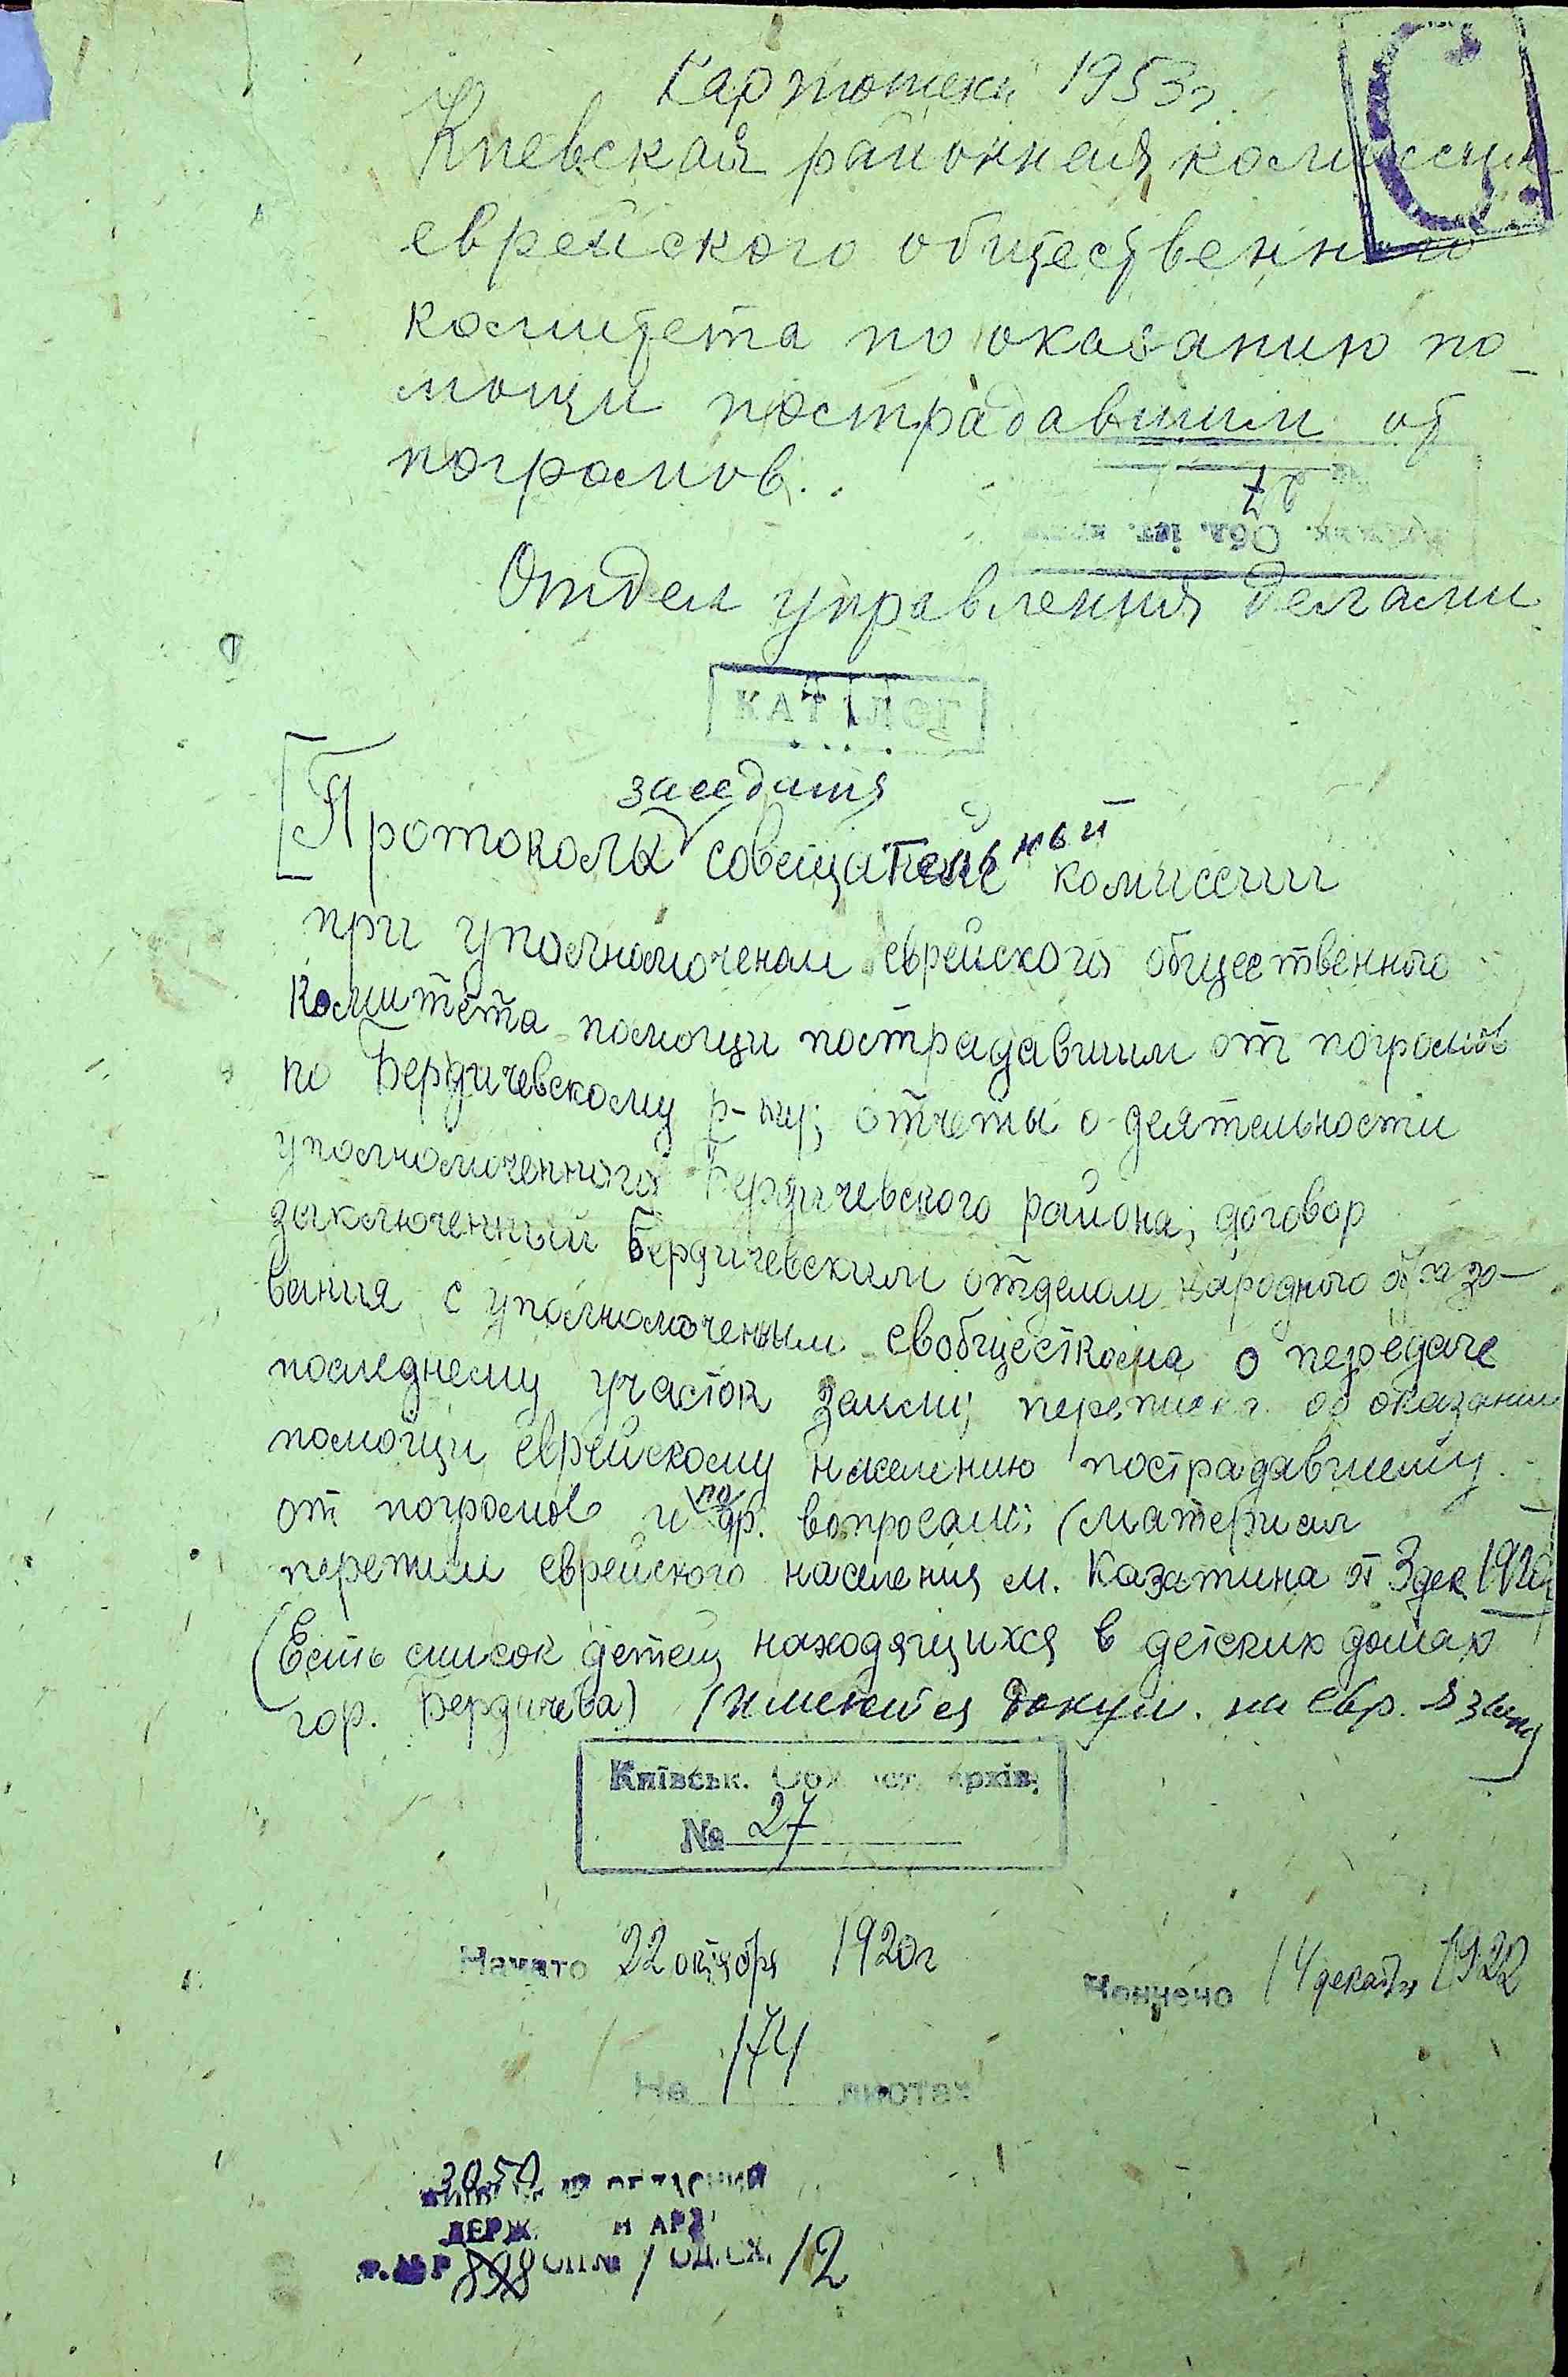 Картотека 1953г.
Киевская районная комиссия
еврейского общественного
комитета по оказанию по-
мощи пострадавшим от
погромов.
Отдел управления делами
КАТАЛОГ
заседания
Протоколы совещательный комиссии
при уполномоченом еврейского общественного
комитета помощи пострадавшим от погромов
по Бердичевскому р-ну; отчеты о деятельности
уполномоченного Бердичевского района; договор
заключенный Бердичевским отделом народного образо-
вания с уполномоченным евобщесткома о передаче
последнему участок земли; переписка об оказании
помощи еврейскому населению пострадавшему
от погромов и по др. вопросам; (материал
переписи еврейского населения м. Казатина от 3 дек 1920г
(Есть список детей находящихся в детских домах
гор. Бердичева) (имеются докум. на евр. языке)
Київськ. архів
№ 27
Начато 22 октября 1920г
Кончено 14 декабря 1922
174
На листах
3050
ДЕРЖ. АРХ
Ф.№ Р 898 ОП № 1 ОД.ЗХ. 12